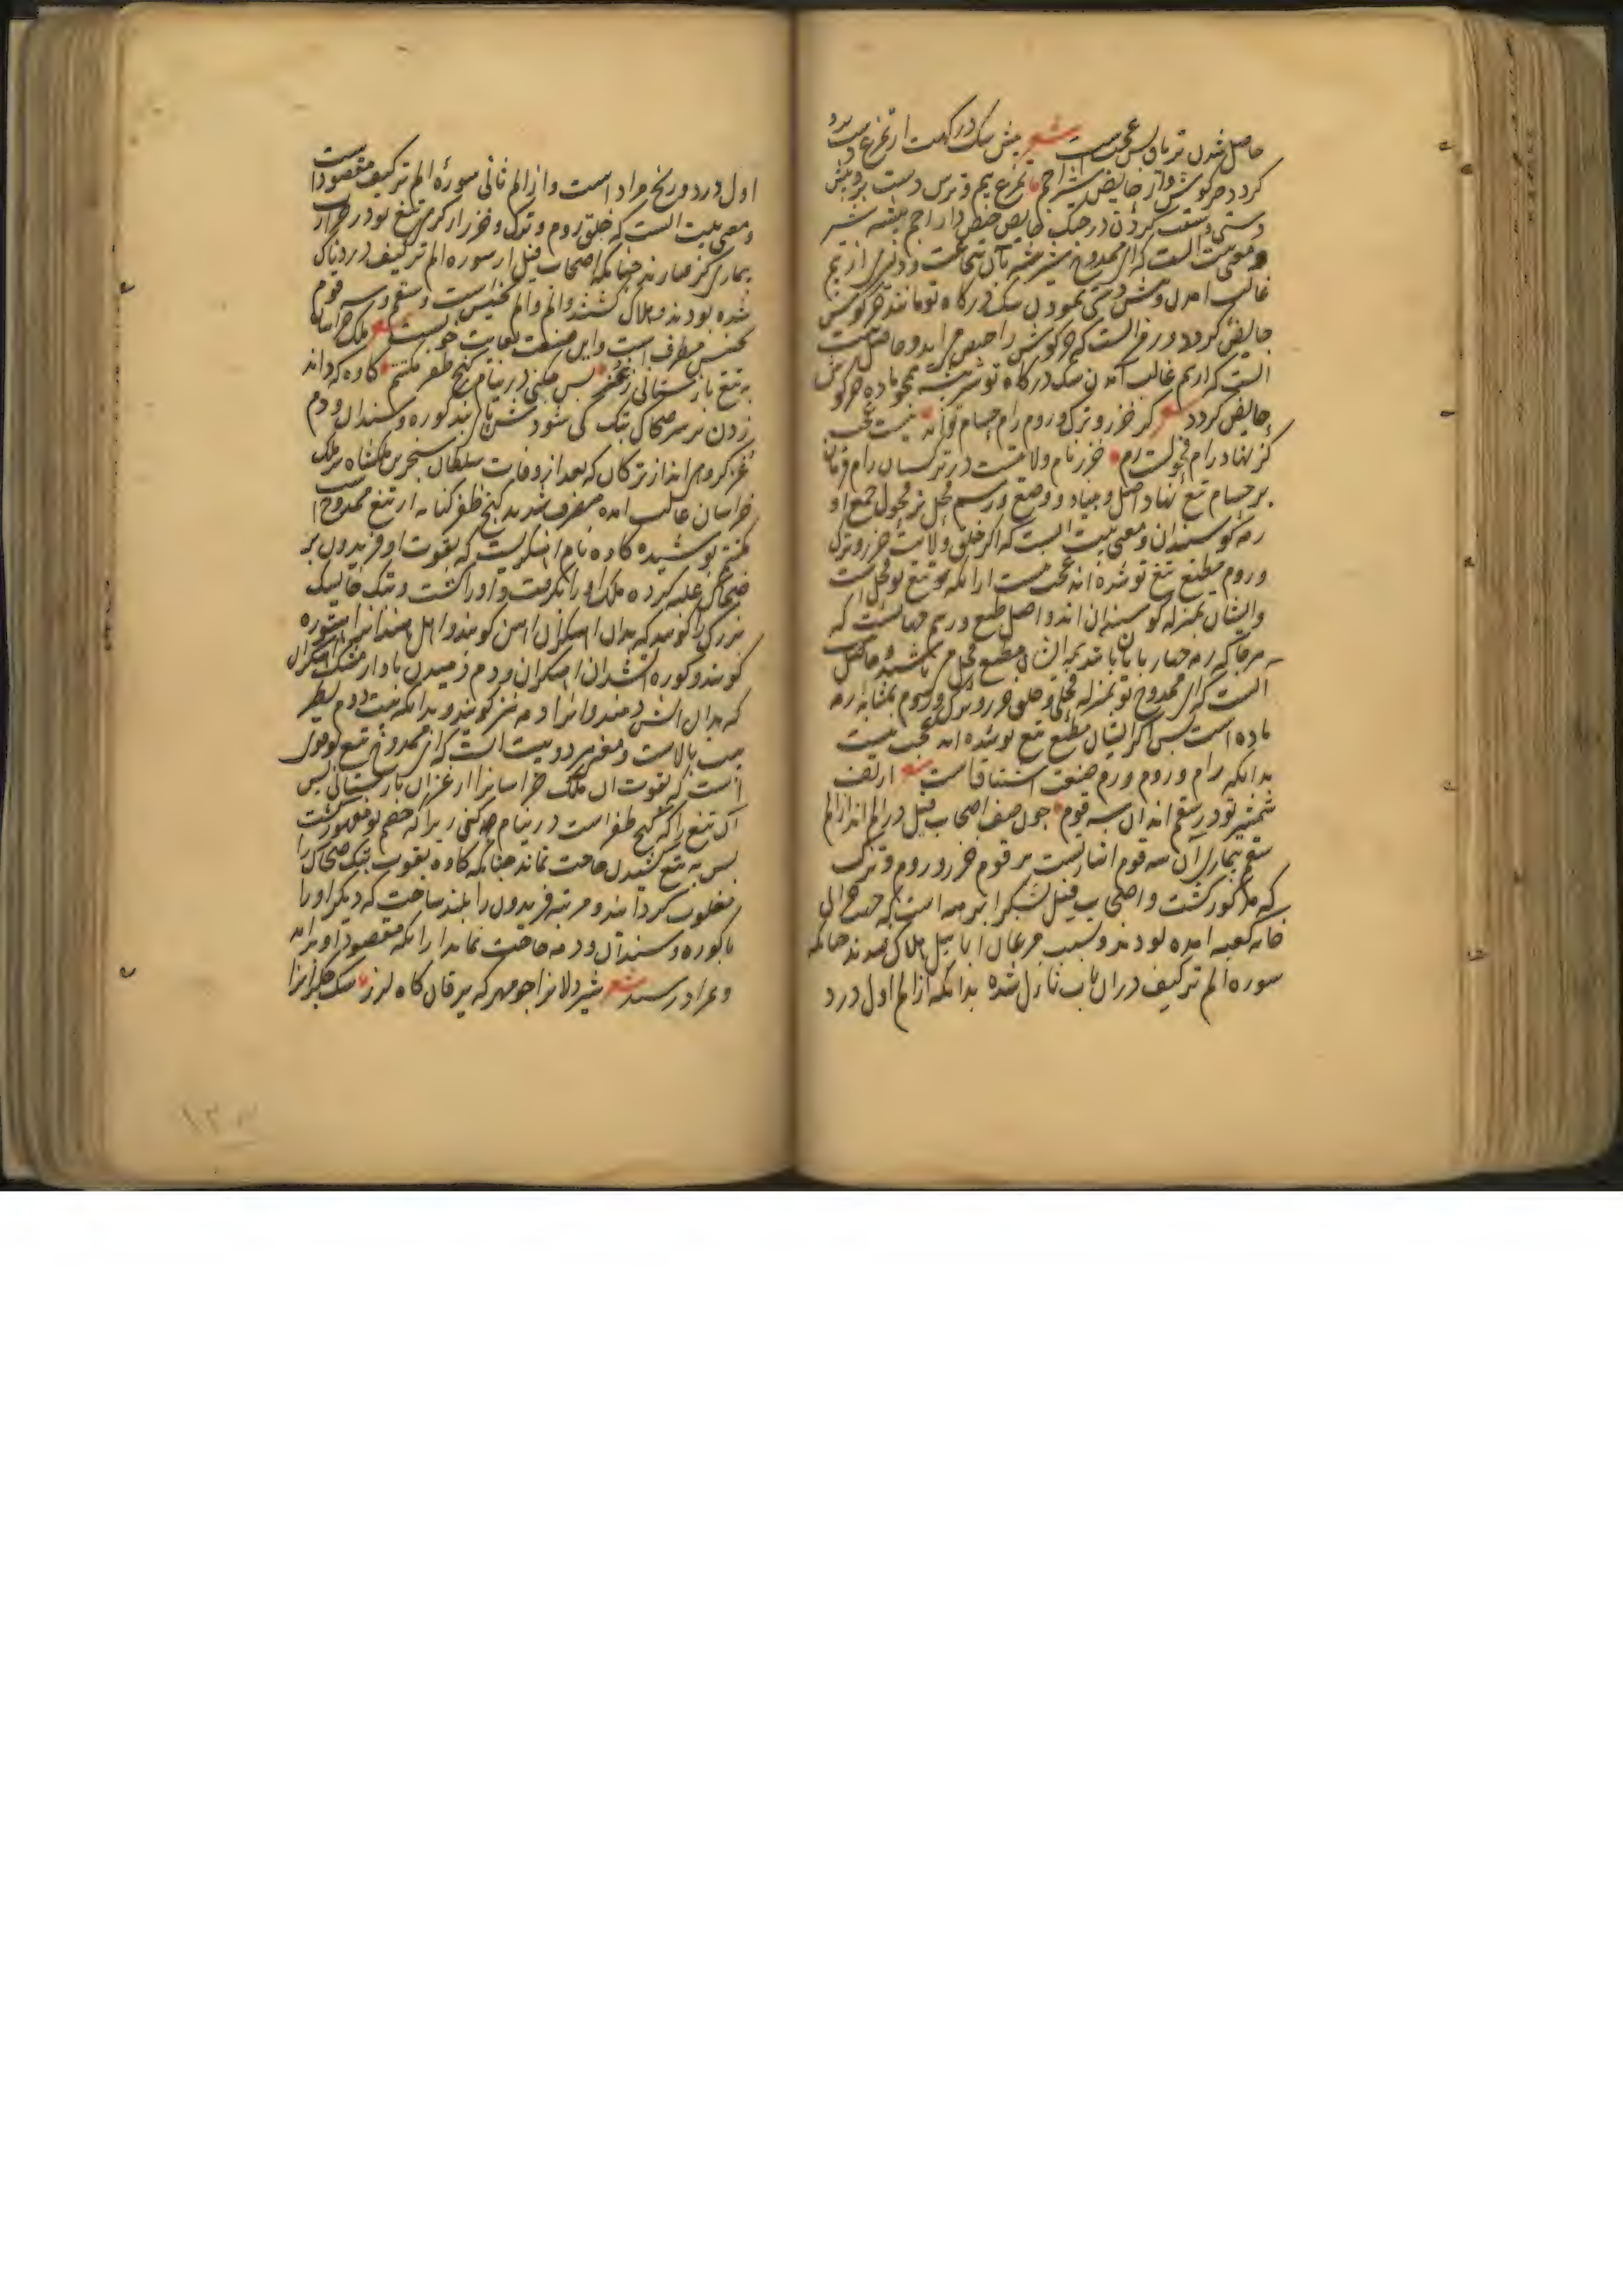 حاصل شدن تریاق بس عجب است شعر پیش سک در کهت از تفزع دست برد
کردد خرکوش وار حایض شیر اجم تفزع بیم و ترس دست برد پیش
دستی و سبقت کردن در جنک حایض حیض دار اجم بیشه شیر
و معنی بیت انست که ای ممدوح شیر بیشه بآن شجاعت و دلیری از بیم
غالب امدن و پیش دستی نمودن سک درکاه تو مانند خرکوش
حایض کردد و رمز انست که خرکوش را حیض می اید و حاصل بیت
انست که از بیم غالب آمدن سک درکاه تو شیر بیشه همچو ماده خرکوش
حایض کردد شعر کر خزر و ترک و روم رام حسام تواند نیست عجب
کز نهاد رام فحولست رم خزر نام ولایتست در ترکستان رام فرمان
بر حسام تیغ نهاد اصل و بنیاد و وضع و رسم فحل نر فحول جمع او
رمه کوسفندان و معنی بیت انست که اکر خلق ولایت خزر و ترک
و روم مطیع تیغ تو شده اند عجب نیست از انکه تیغ تو فحل است
وایشان بمنزله کوسفندان اند و اصل طبع و رسم جهانست که
هرجا که رمه چهار پایان باشد همه ایشان مطیع فحل می باشند و حاصل
انست که ای ممدوح تو بمنزله فحلی و خلق خزر و ترک و روم بمثابه رمه
ماده است پس اکر ایشان مطیع تیغ تو شده اند عجب نیست
بدانکه رام و روم و رم صنعت اشتقاق است شعر از تف
شمشیر تو در سقم اند ان سه قوم چون صف اصحاب فیل در الم اند از الم
سقم بیماری آن سه قوم اشارتست بر قوم خزر و روم و ترک
که مذکور کشت و اصحاب فیل لشکر ابرهه است که جهت خرابی
خانه کعبه امده بودند و بسبب مرغان ابابیل هلاک شدند چنانکه
سوره الم ترکیف در ان باب نازل شده بدانکه از الم اول درد
اول درد و رنج مراد است و از الم ثانی سورهٔ الم ترکیف مقصود است
و معنی بیت انست که خلق روم و ترک و خزر از کرمی تیغ تو در
بیماری کرفتارند چنانکه اصحاب فیل از سوره الم ترکیف دردناک
شده بودند و هلاک کشتند و الم و الم تجنیس است و سقم و سه قوم
تجنیس مطرف است و این صنعت بغایت خوبست شعر ملک خراسان
به تیغ باز ستانی ز غز پس چکنی در نیام کنج ظفر مکتتم کاوه که داند
زدن بر سر ضحاک پتک کی شودش پای بند کوره و سندان و دم
غز کروهی اند از ترکان که بعد از وفات سلطان سنجر بن ملکشاه بر ملک
خراسان غالب امده متصرف شدند کنج ظفر کنایه از تیغ ممدوح است
مکتتم پوشیده کاوه نام اهنکریست که بقوت او فریدون بر
ضحاک غلبه کرده ملک او را بکرفت و او را کشت و پتک خایسک
بزرک را کویند که بدان اهنکران اهن کوبند و اهل هند انرا هتوره
کویند و کوره اتشدان اهنکران و دم دمیدن باد از مشک اهنکران
که بدان اتش دمند و انرا دمه نیز کویند و بدانکه بیت دوم نظیر
بیت بالاست و معنی هر دو بیت انست که ای ممدوح تیغ تو قوی
است که بقوت ان ملک خراسانرا از غزان باز ستانی پس
آن تیغ را که کنج ظفر است در نیام چه کنی زیرا که خصم تو مقهور کشت
پس به تیغ کشیدن حاجت نماند چنانکه کاوه بقوت پتک ضحاک را
مغلوب کردانید و مرتبه فریدون را بلند ساخت که دیکر او را
با کوره و سندان و دمه حاجت نماند از انکه مقصود او بر امد
و بمراد رسید شعر شیر دلانرا چو مهر که یرقان کاه لرز سک جکرانرا
۱۳۰